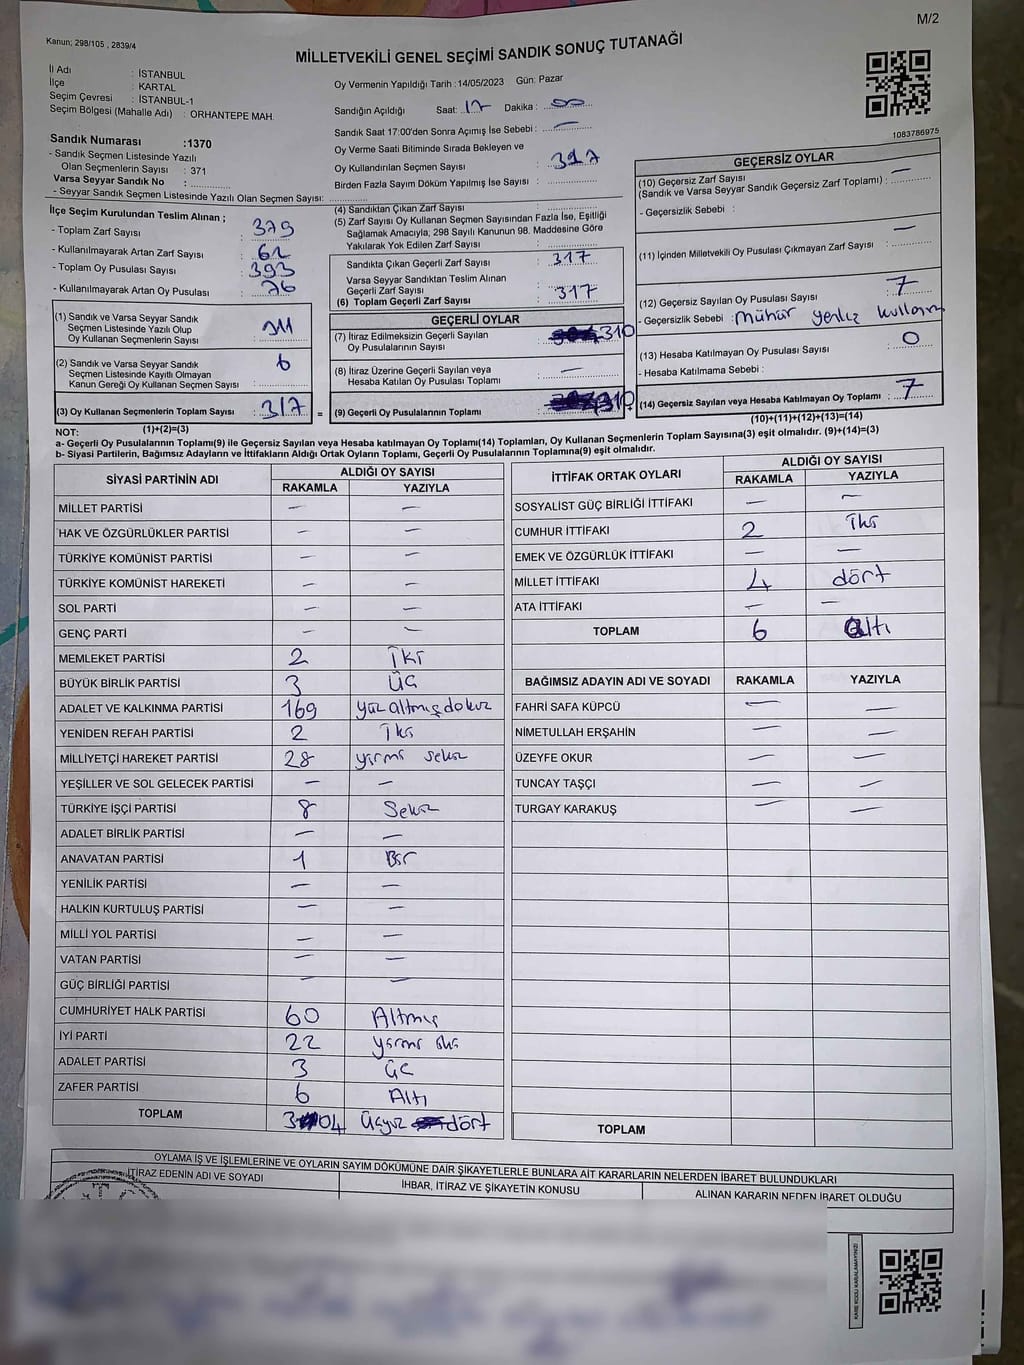 M/2
Kanun; 298/105 , 2839/4
MİLLETVEKİLİ GENEL SEÇİMİ SANDIK SONUÇ TUTANAĞI
İl Adı : İSTANBUL
İlçe : KARTAL
Seçim Çevresi : İSTANBUL-1
Seçim Bölgesi (Mahalle Adı) : ORHANTEPE MAH.
Sandık Numarası :1370
- Sandık Seçmen Listesinde Yazılı
Olan Seçmenlerin Sayısı : 371
Varsa Seyyar Sandık No :
- Seyyar Sandık Seçmen Listesinde Yazılı Olan Seçmen Sayısı:
Oy Vermenin Yapıldığı Tarih :14/05/2023 Gün: Pazar
Sandığın Açıldığı Saat: 17 Dakika : 00
Sandık Saat 17:00'den Sonra Açımış İse Sebebi : —
Oy Verme Saati Bitiminde Sırada Bekleyen ve
Oy Kullandırılan Seçmen Sayısı : 317
Birden Fazla Sayım Döküm Yapılmış İse Sayısı :
1083786975
İlçe Seçim Kurulundan Teslim Alınan ;
- Toplam Zarf Sayısı : 379
- Kullanılmayarak Artan Zarf Sayısı : 62
- Toplam Oy Pusulası Sayısı : 393
- Kullanılmayarak Artan Oy Pusulası : 76
(1) Sandık ve Varsa Seyyar Sandık
Seçmen Listesinde Yazılı Olup
Oy Kullanan Seçmenlerin Sayısı : 311
(2) Sandık ve Varsa Seyyar Sandık
Seçmen Listesinde Kayıtlı Olmayan
Kanun Gereği Oy Kullanan Seçmen Sayısı : 6
(3) Oy Kullanan Seçmenlerin Toplam Sayısı : 317 =
(1)+(2)=(3)
(4) Sandıktan Çıkan Zarf Sayısı :
(5) Zarf Sayısı Oy Kullanan Seçmen Sayısından Fazla İse, Eşitliği
Sağlamak Amacıyla; 298 Sayılı Kanunun 98. Maddesine Göre
Yakılarak Yok Edilen Zarf Sayısı :
Sandıkta Çıkan Geçerli Zarf Sayısı : 317
Varsa Seyyar Sandıktan Teslim Alınan
Geçerli Zarf Sayısı
(6) Toplam Geçerli Zarf Sayısı : 317
GEÇERLİ OYLAR
(7) İtiraz Edilmeksizin Geçerli Sayılan
Oy Pusulalarının Sayısı : 310
(8) İtiraz Üzerine Geçerli Sayılan veya
Hesaba Katılan Oy Pusulası Toplamı : —
(9) Geçerli Oy Pusulalarının Toplamı : 310 +
GEÇERSİZ OYLAR
(10) Geçersiz Zarf Sayısı
(Sandık ve Varsa Seyyar Sandık Geçersiz Zarf Toplamı) : —
- Geçersizlik Sebebi :
(11) İçinden Milletvekili Oy Pusulası Çıkmayan Zarf Sayısı : —
(12) Geçersiz Sayılan Oy Pusulası Sayısı : 7
- Geçersizlik Sebebi : mühür
(13) Hesaba Katılmayan Oy Pusulası Sayısı : 0
- Hesaba Katılmama Sebebi :
(14) Geçersiz Sayılan veya Hesaba Katılmayan Oy Toplamı : 7
(10)+(11)+(12)+(13)=(14)
NOT:
a- Geçerli Oy Pusulalarının Toplamı(9) ile Geçersiz Sayılan veya Hesaba katılmayan Oy Toplamı(14) Toplamları, Oy Kullanan Seçmenlerin Toplam Sayısına(3) eşit olmalıdır. (9)+(14)=(3)
b- Siyasi Partilerin, Bağımsız Adayların ve İttifakların Aldığı Ortak Oyların Toplamı, Geçerli Oy Pusulalarının Toplamına(9) eşit olmalıdır.
SİYASİ PARTİNİN ADI ALDIĞI OY SAYISI
RAKAMLA YAZIYLA
MİLLET PARTİSİ — —
HAK VE ÖZGÜRLÜKLER PARTİSİ — —
TÜRKİYE KOMÜNİST PARTİSİ — —
TÜRKİYE KOMÜNİST HAREKETİ — —
SOL PARTİ — —
GENÇ PARTİ — —
MEMLEKET PARTİSİ 2 İki
BÜYÜK BİRLİK PARTİSİ 3 Üç
ADALET VE KALKINMA PARTİSİ 169 yüz altmış dokuz
YENİDEN REFAH PARTİSİ 2 İki
MİLLİYETÇİ HAREKET PARTİSİ 28 yirmi sekiz
YEŞİLLER VE SOL GELECEK PARTİSİ — —
TÜRKİYE İŞÇİ PARTİSİ 8 Sekiz
ADALET BİRLİK PARTİSİ — —
ANAVATAN PARTİSİ 1 Bir
YENİLİK PARTİSİ — —
HALKIN KURTULUŞ PARTİSİ — —
MİLLİ YOL PARTİSİ — —
VATAN PARTİSİ — —
GÜÇ BİRLİĞİ PARTİSİ — —
CUMHURİYET HALK PARTİSİ 60 Altmış
İYİ PARTİ 22 yirmi iki
ADALET PARTİSİ 3 üç
ZAFER PARTİSİ 6 Altı
TOPLAM 304 Üçyüz dört
İTTİFAK ORTAK OYLARI ALDIĞI OY SAYISI
RAKAMLA YAZIYLA
SOSYALİST GÜÇ BİRLİĞİ İTTİFAKI — —
CUMHUR İTTİFAKI 2 İki
EMEK VE ÖZGÜRLÜK İTTİFAKI — —
MİLLET İTTİFAKI 4 dört
ATA İTTİFAKI — —
TOPLAM 6 altı
BAĞIMSIZ ADAYIN ADI VE SOYADI RAKAMLA YAZIYLA
FAHRİ SAFA KÜPCÜ — —
NİMETULLAH ERŞAHİN — —
ÜZEYFE OKUR — —
TUNCAY TAŞÇI — —
TURGAY KARAKUŞ — —
TOPLAM
OYLAMA İŞ VE İŞLEMLERİNE VE OYLARIN SAYIM DÖKÜMÜNE DAİR ŞİKAYETLERLE BUNLARA AİT KARARLARIN NELERDEN İBARET BULUNDUKLARI
İTİRAZ EDENİN ADI VE SOYADI İHBAR, İTİRAZ VE ŞİKAYETİN KONUSU ALINAN KARARIN NEDEN İBARET OLDUĞU
KARE KODU KARALAMAYINIZ!